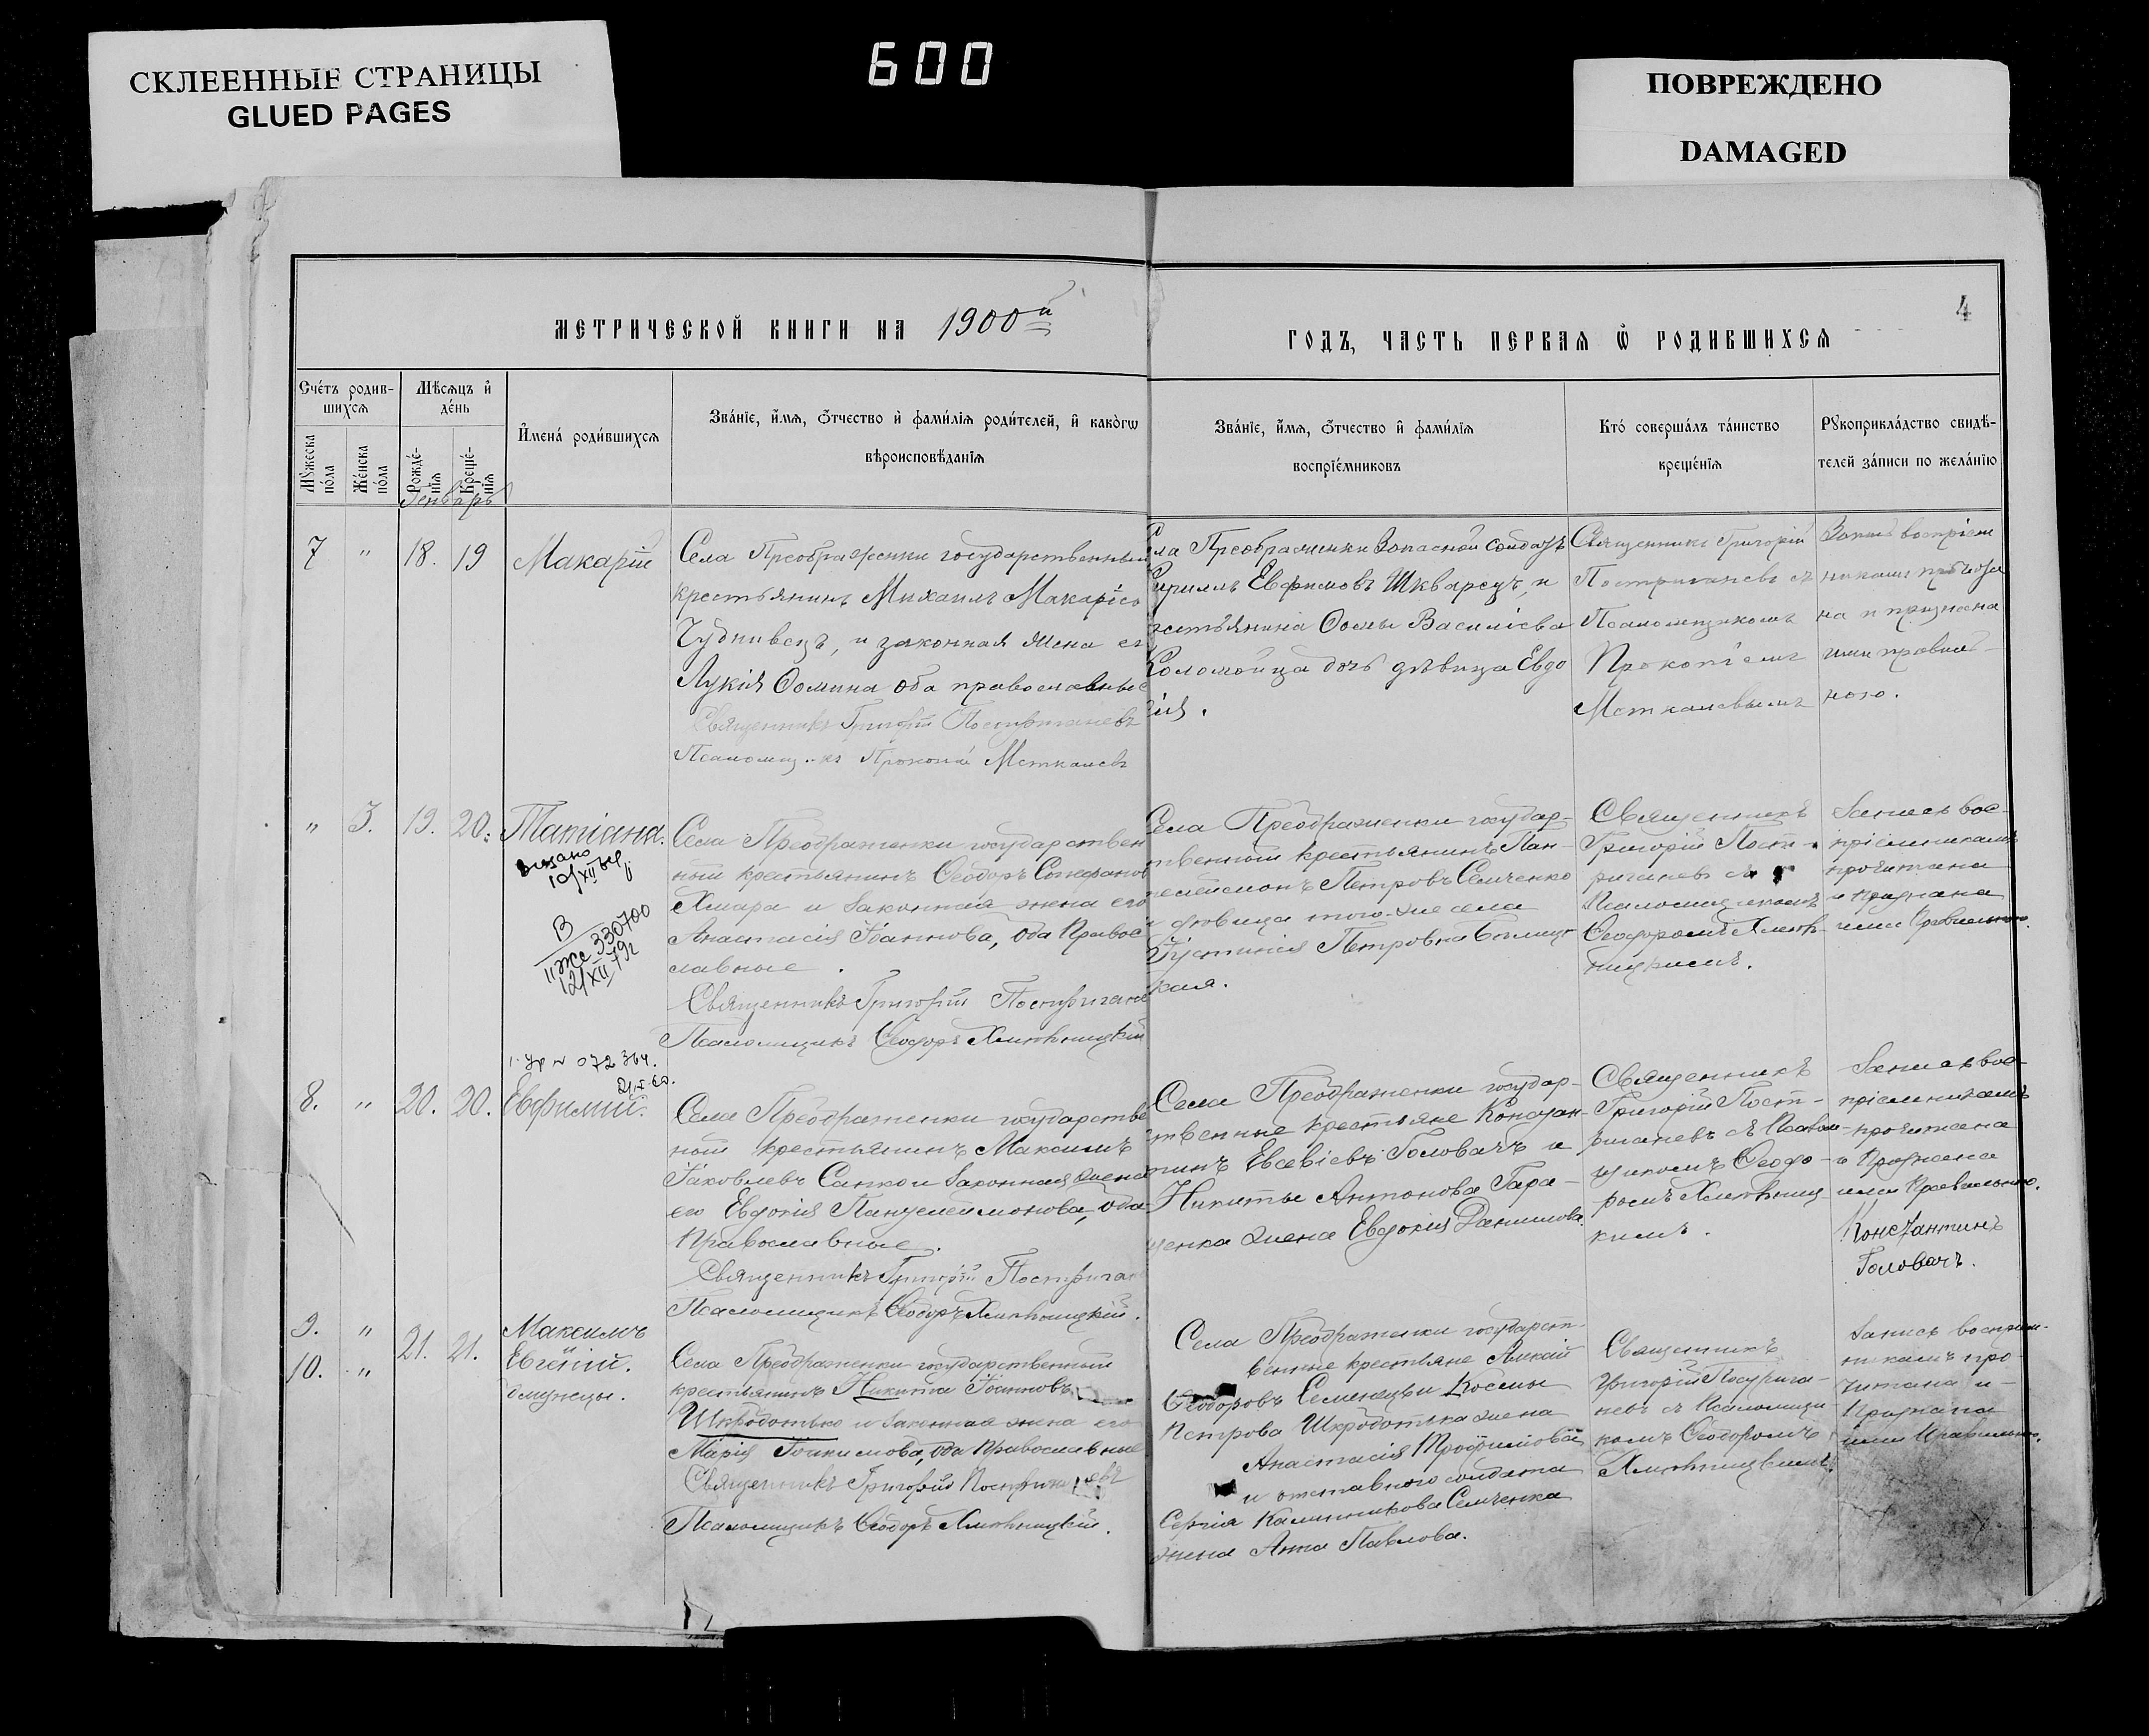 СКЛЕЕННЫЕ СТРАНИЦЫ
GLUED PAGES
600
ПОВРЕЖДЕНО
DAMAGED
МЕТРИЧЕСКОЙ КНИГИ НА 1900й
ГОДЪ, ЧАСТЬ ПЕРВАѦ Ѡ РОДИВШИХСѦ
4
Счéтъ родив-
шихсѧ
Мѣсѧцъ и҆
де́нь
Мꙋ́жеска
по́ла
Же́нска
по́ла
Рожде́-
нїѧ
Креще́-
нїѧ
И҆мена́ роди́вшихсѧ
Зва́нїе, и҆́мѧ, ѻ҆́тчество и҆ фами́лїѧ роди́телей, и҆ како́гѡ
вѣроисповѣ́данїѧ
Зва́нїе, и҆́мѧ, ѻ҆́тчество и҆ фами́лїѧ
воспрїе́мниковъ
Кто́ соверша́лъ та́инство
креще́нїѧ
Рꙋкоприкла́дство свидѣ́-
телей за́писи по жела́нїю
Генварь
7 " 18. 19 Макарій
Села Преображенки государственный
крестьянинъ Михаилъ Макаріев
Чубпивецъ, и законная жена ег
Лукія Ѳомина оба православные
Священникъ Григорій Постриганевъ
Прокопій Меткалевъ
ла Преображенки Запасной солдатъ
Кирилъ Евфимовъ Шкварецъ, и
крестьянина Ѳомы Василіева
Коломойца дочь дѣвица Евдо
кія.
Священникъ Григорій
Постриганевъ съ
Псаломщикомъ
Прокопіемъ
Меткалевымъ
Запись воспріем
никами прочита
на и признана
ими правиль-
ною.
" 3. 19. 20. Татіана.
10/XII
В
11 же 330700
12/XII 792
Села Преображенки государствен
ный крестьянинъ Ѳеодоръ Стефанов
Хмара и законная жена его
Анастасія Іоаннова, оба Правос
лавные.
Священникъ Григорій Постригане
Псаломщикъ Ѳеодоръ Хмѣльницкій
Села Преображенки государ-
ственный крестьянинъ Пан-
телеймонъ Петровъ Семченко
и дѣвица того-же села
Іустинія Петровна
кая.
Священникъ
Григорій Пост-
риганевъ съ
Псаломщикомъ
Ѳеодоромъ Хмѣль-
ницкимъ.
Запись вос-
пріемникамъ
прочитана
и признана
ими Правильною.
072364.
8. " 20. 20. Евфимій.
Села Преображенки государстве
ный крестьянинъ Максимъ
Іаковлевъ Санко и законная жена
его Евдокія Пантелеймонова, оба
Православные.
Священникъ Григорій Постриган
Псаломщикъ Ѳеодоръ Хмѣльницкій.
Села Преображенки государ-
ственные крестьяне Констан-
тинъ Евсевіевъ Головачъ и
Никиты Антонова Гара-
щенка жена Евдокія Данилова.
Священникъ
Григорій Пост-
риганевъ съ Псалом-
щикомъ Ѳеодо-
ромъ Хмѣльниц-
кимъ.
Запись вос-
пріемникамъ
прочитана
и Признана
ими Правильною.
Константинъ
Головачъ.
9. " Максимъ
21. 21.
10. " Евгеній.
близнецы.
Села Преображенки государственный
крестьянинъ Никита Іоанновъ
Шкроботько и законная жена его
Марія Іоакимова, оба Православные
Священникъ Григорій Постриганевъ
Псаломщикъ Ѳеодоръ Хмѣльницкій.
Села Преображенки государст-
венные крестьяне Алексій
Ѳеодоровъ Семенецъ и Космы
Петрова Шкроботька жена
Анастасія Трофимова
и отставного солдата
Сергія Калинникова Семченка
жена Анна Павлова.
Священникъ
Григорій Пострига-
невъ съ Псаломщи
комъ Ѳеодоромъ
Хмѣльницкимъ.
Запись воспріем-
никамъ про-
читана и
Признана
ими Правильною.